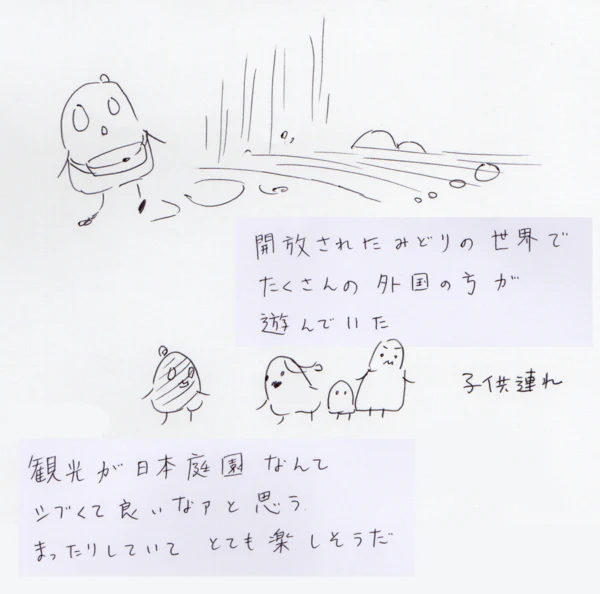 開放されたみどりの世界で
たくさんの外国の方が
遊んでいた
子供連れ
観光が日本庭園なんて
シブくて良いなァと思う
まったりしていてとても楽しそうだ